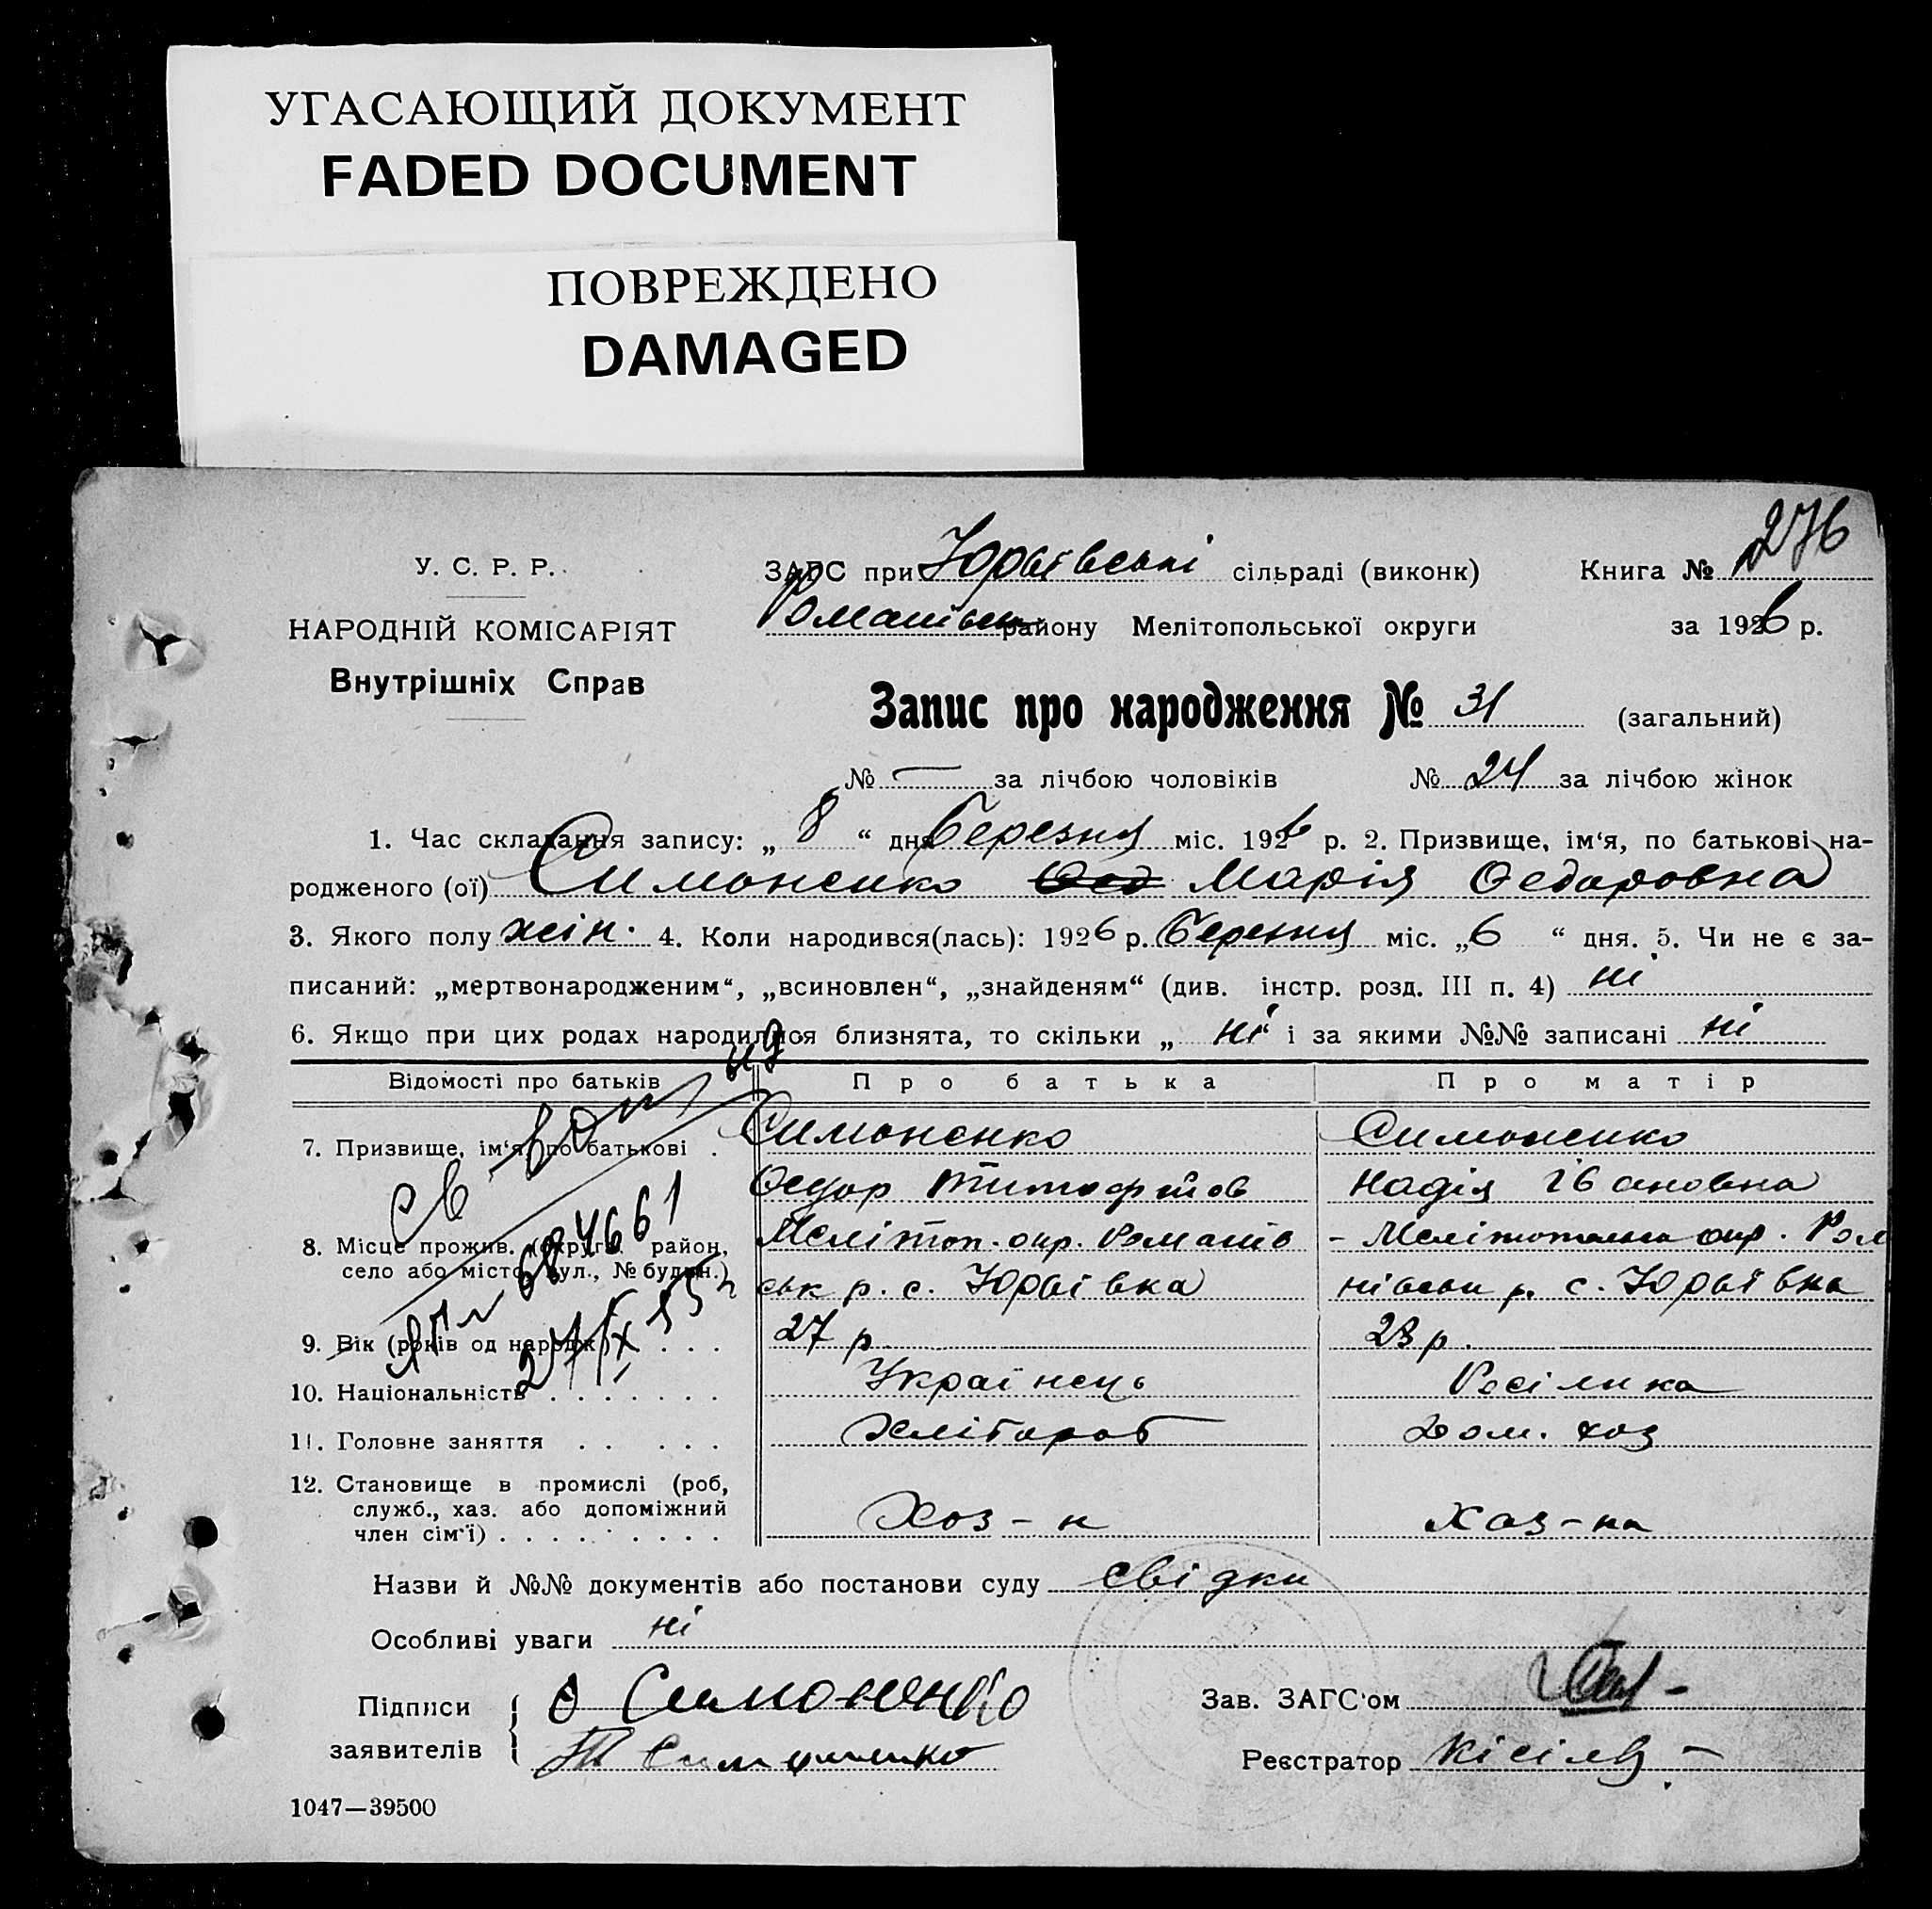 УГАСАЮЩИЙ ДОКУМЕНТ
FADED DOCUMENT
ПОВРЕЖДЕНО
DAMAGED
276
У. С. Р. Р.
ЗАГС при Юрьївські сільраді (виконк) Книга №
НАРОДНІЙ КОМІСАРІЯТ
Романівськ району Мелітопольської округи за 1926 р.
Внутрішніх Справ
Запис про народження № 31 (загальний)
№ — за лічбою чоловіків № 24 за лічбою жінок
1. Час складання запису: „ 8 “ дня березня міс. 1926 р. 2. Призвище, ім‘я, по батькові на-
родженого (ої) Симоненко Марія Федоровна
3. Якого полу жін. 4. Коли народився(лась): 1926 р. березня міс. „6 “ дня. 5. Чи не є за-
писаний: „мертвонародженим“, „всиновлен“, „знайденям“ (див. інстр. розд. III п. 4) ні
6. Якщо при цих родах народилися близнята, то скільки „ ні “ і за якими №№ записані ні
Відомості про батьків Про батька Про матір
7. Призвище, ім‘я, по батькові . Симоненко Симоненко
Федор Тимофійов Надія Івановна
8. Місце прожив. (округа, район, Мелітоп. окр. Романів - Мелітопольськ окр. Ром
село або місто, вул., № будин.) ськ р. с. Юрьївка нівськ р. с. Юрьївка
9. Вік (років од народж.) . . . 27 р. 23 р.
10. Національність . . . . . . . Українець Росіянка
11. Головне заняття . . . . . Хлібороб Дом. хоз
12. Становище в промислі (роб,
служб., хаз. або допоміжний
член сім‘ї) . . . . . . . . . Хоз-н Хоз-ка
св 684661
Назви й №№ документів або постанови суду свідки
Особливі уваги ні
Підписи Ф Симоненко Зав. ЗАГС‘ом
заявителів Т Симоненко Реєстратор Кісіль
1047—39500